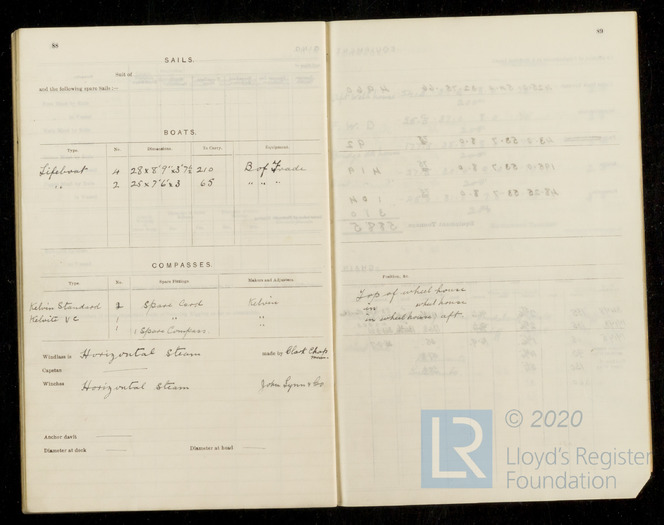 88
SAILS.
Suit of
and the following spare Sails :—
BOATS.
Type. No. Dimensions. To Carry. Equipment.
Lifeboat 4 28 x 8'9" x 3'7½ 210 B of Trade
" 2 25 x 7'6 x 3 65 " " "
COMPASSES.
Type. No. Spare Fittings Makers and Adjusters.
Kelvin Standard 2 Spare Card Kelvin
Kelvite VC 1 " "
1 1 Spare Compass. "
Windlass is Horizontal Steam made by Clark Chap
Capstan
Winches Horizontal Steam John Lynn & Co
Anchor davit
Diameter at deck Diameter at head
89
Position, &c.
Top of wheel house
in wheel house
in wheel house aft.
© 2020
LR
Lloyd's Register
Foundation